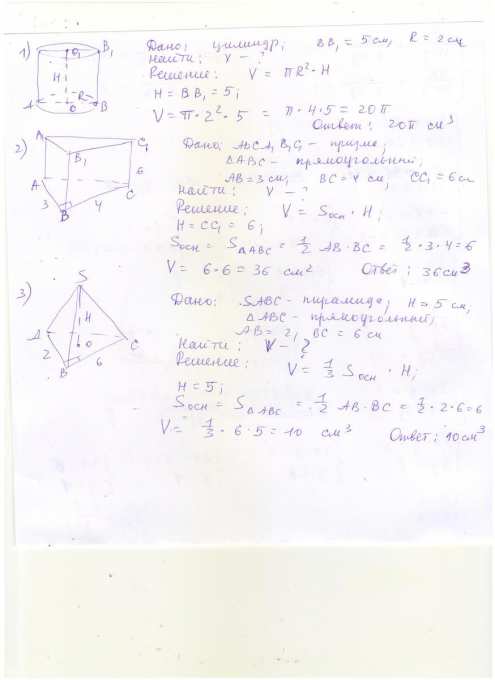 1) Дано: цилиндр; BB₁ = 5 см, R = 2 см
Найти: V - ?
Решение: V = πR² · H
H = BB₁ = 5;
V = π · 2² · 5 = π · 4 · 5 = 20π
Ответ: 20π см³
O₁ B₁
H
R
A O B
2) Дано: ABCA₁B₁C₁ - призма;
△ABC - прямоугольный;
AB = 3 см, BC = 4 см, CC₁ = 6 см
Найти: V - ?
Решение: V = Sосн · H;
H = CC₁ = 6;
Sосн = S△ABC = 1/2 AB · BC = 1/2 · 3 · 4 = 6
V = 6 · 6 = 36 см² Ответ: 36 см³
A C₁
B₁
6
A C
3 4
B
3) Дано: SABC - пирамида, H = 5 см,
△ABC - прямоугольный;
AB = 2, BC = 6 см
Найти: V - ?
Решение: V = 1/3 Sосн · H;
H = 5;
Sосн = S△ABC = 1/2 AB · BC = 1/2 · 2 · 6 = 6
V = 1/3 · 6 · 5 = 10 см³ Ответ: 10 см³
S
H
A C
O
2 6
B